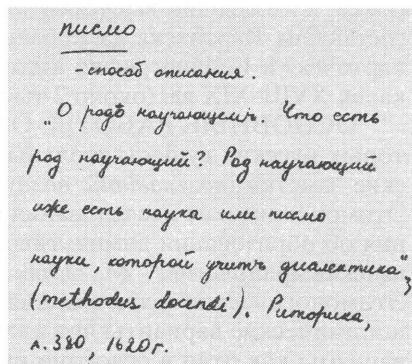 письмо
- способ описания.
„О родѣ научающемъ. Что есть
род научающий? Род научающий
иже есть наука или письмо
науки, которой учитъ диалектика",
(methodus docendi). Риторика,
л. 380, 1620 г.